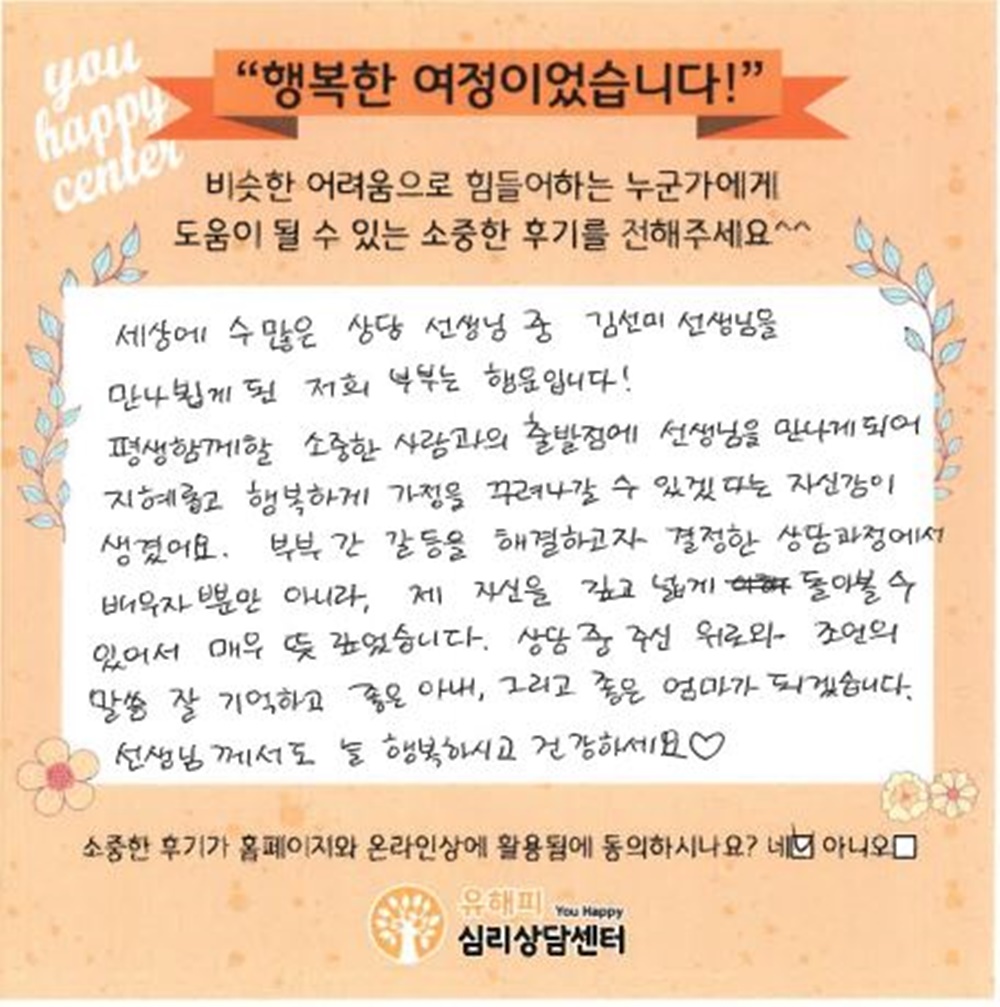 you
happy
center
“행복한 여정이었습니다!”
비슷한 어려움으로 힘들어하는 누군가에게
도움이 될 수 있는 소중한 후기를 전해주세요^^
세상에 수많은 상담 선생님 중 김선미 선생님을
만나뵙게 된 저희 부부는 행운입니다!
평생함께할 소중한 사람과의 출발점에 선생님을 만나게되어
지혜롭고 행복하게 가정을 꾸려나갈 수 있겠다는 자신감이
생겼어요. 부부 간 갈등을 해결하고자 결정한 상담과정에서
배우자뿐만 아니라, 제 자신을 깊고 넓게 돌아볼 수
있어서 매우 뜻 깊었습니다. 상담 중 주신 위로와 조언의
말씀 잘 기억하고 좋은 아내, 그리고 좋은 엄마가 되겠습니다.
선생님께서도 늘 행복하시고 건강하세요♡
소중한 후기가 홈페이지와 온라인상에 활용됨에 동의하시나요? 네☑ 아니오☐
유해피 You Happy
심리상담센터